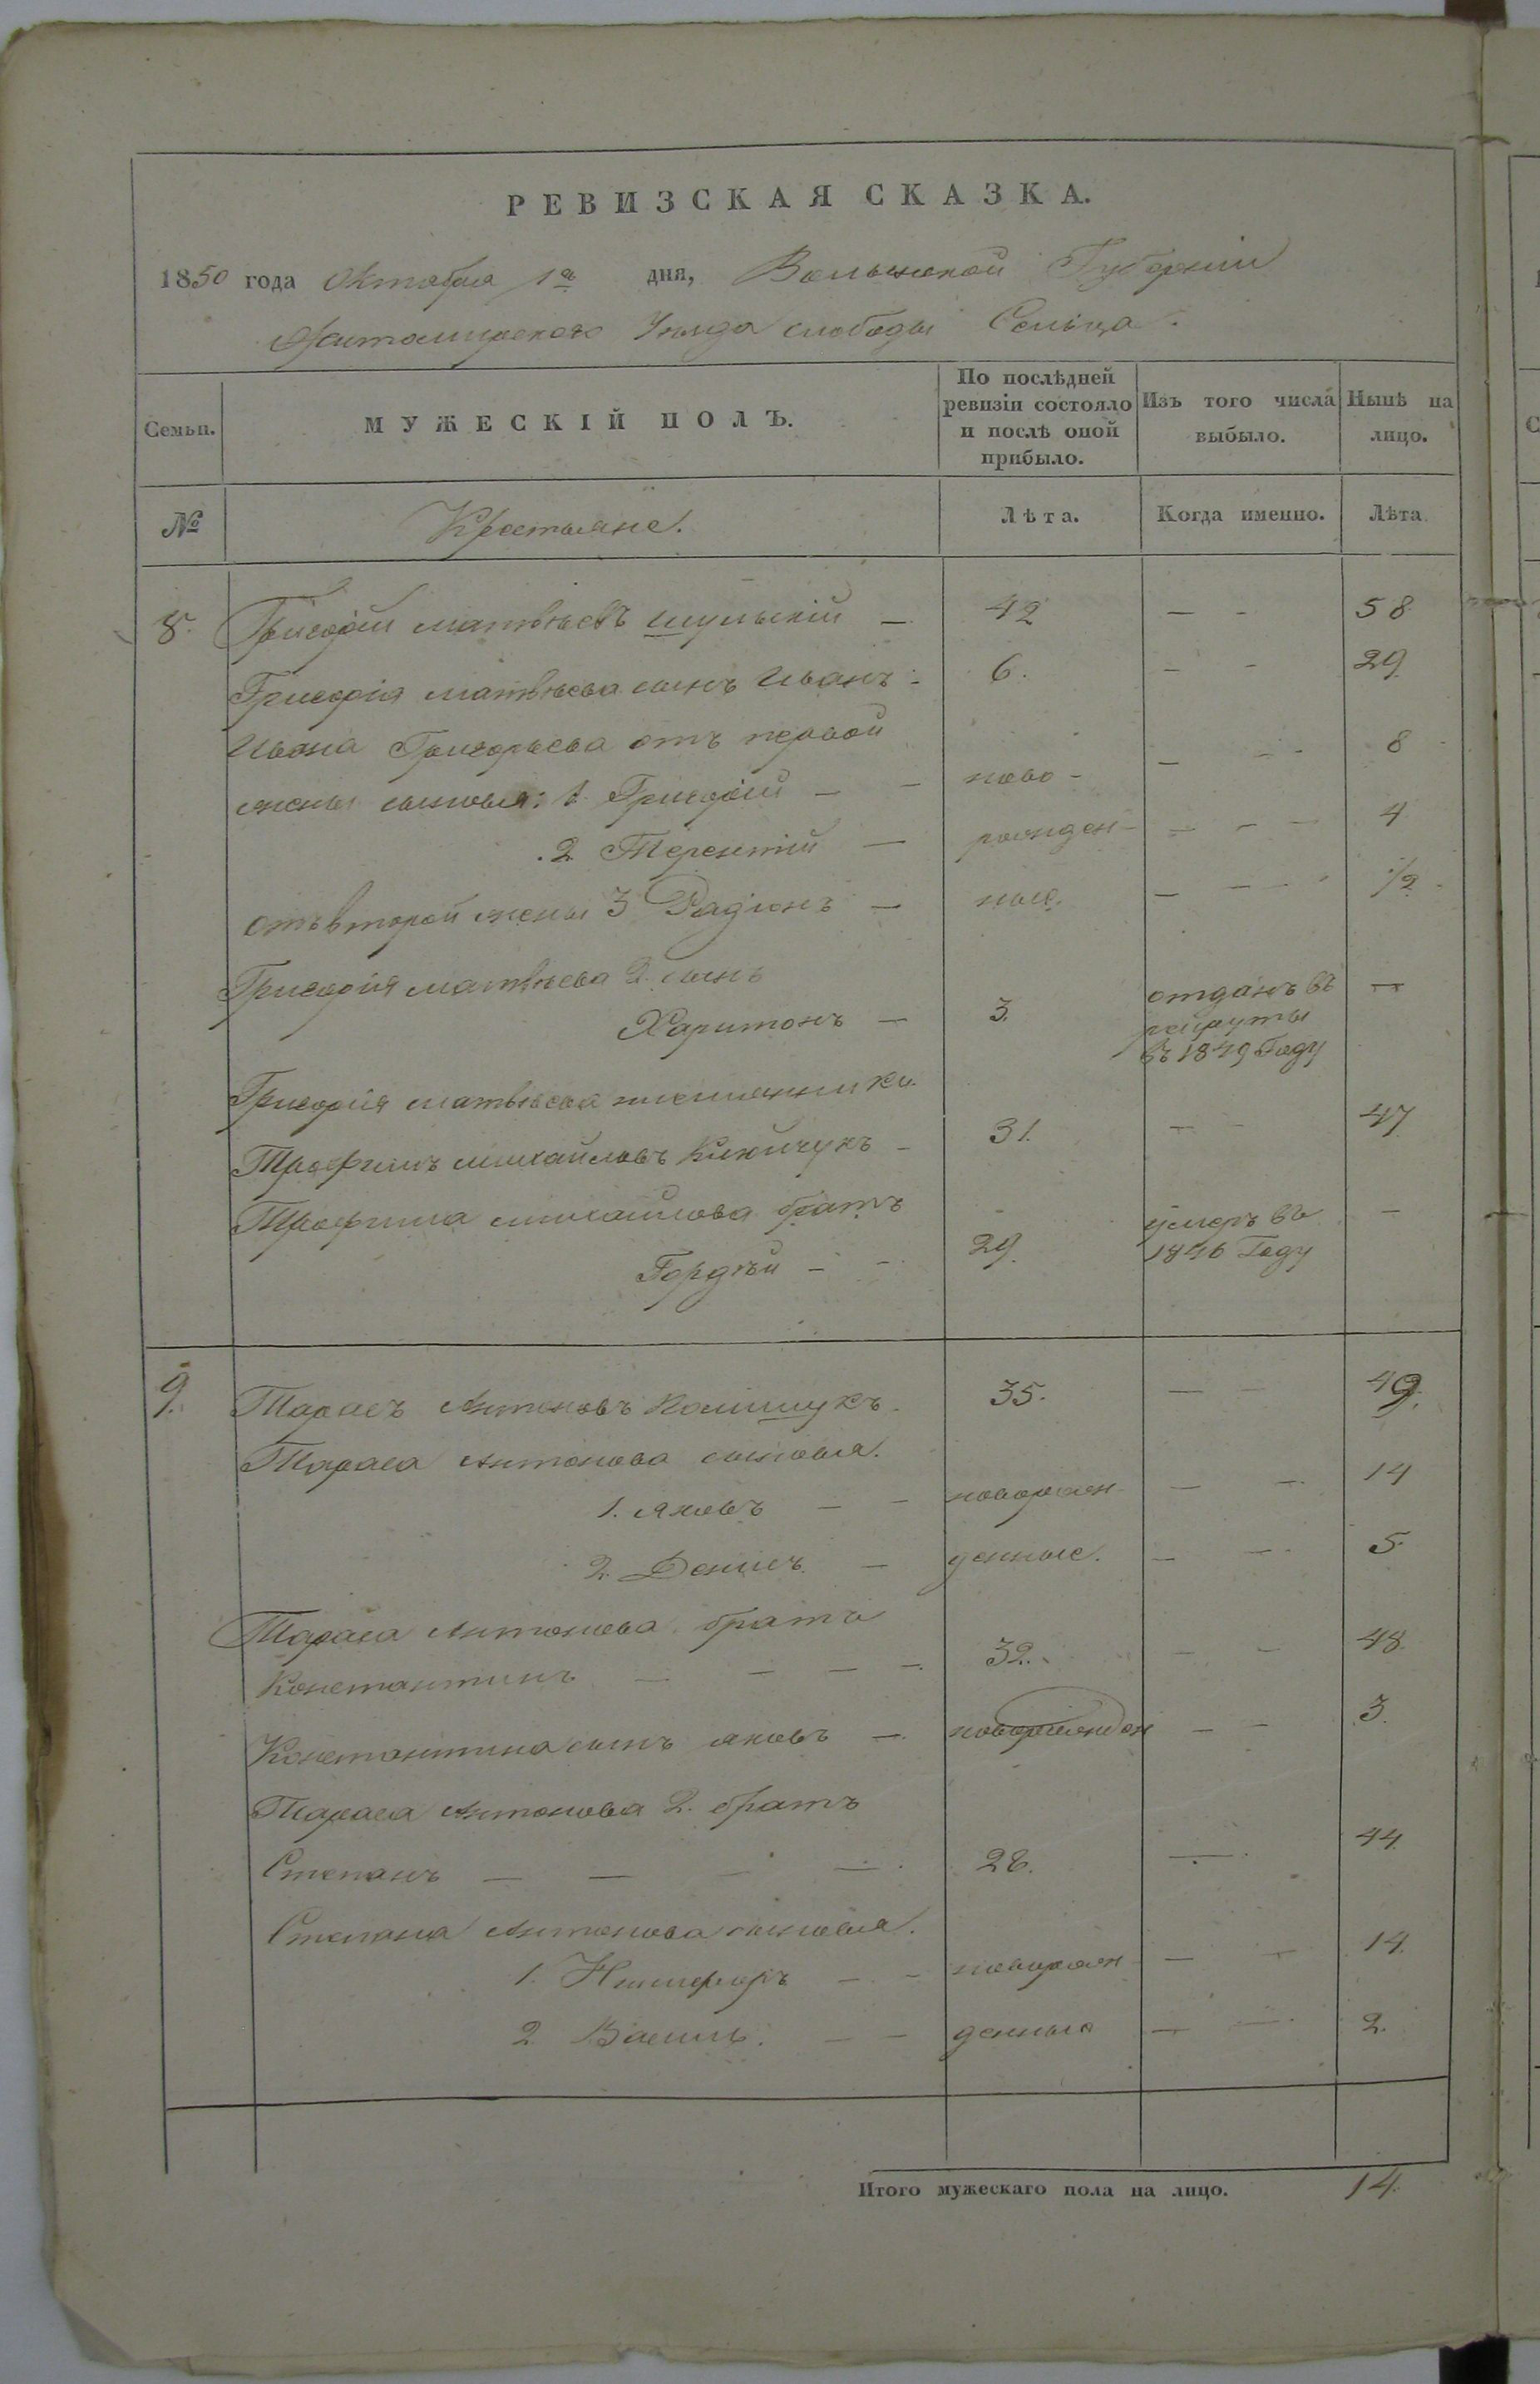 РЕВИЗСКАЯ СКАЗКА.
1850 года Октября 1го дня, Волынской Губернии
Житомирскаго Уезда слободы Сельца.
Семьи. МУЖЕСКІЙ ПОЛЪ. По послѣдней ревизіи состояло и послѣ оной прибыло. Изъ того числа выбыло. Нынѣ на лицо.
№ Крестьяне. Лѣта. Когда именно. Лѣта
8. Григорій Матвѣевъ Шульскій — 42 — - 58
Григорія Матвѣева сынъ Иванъ - 6. — - 29.
Ивана Григорьева отъ первой
жены сыновья: 1. Григорій — - ново- — - - 8
2. Терентій — рожден- — - — 4
отъ второй жены 3 Радіонъ — ные. — - - 1/2
Григорія Матвѣева 2. сынъ
Харитонъ — 3. отданъ въ рекруты въ 1849 Году —
Григорія Матвѣева племянники
Трофимъ Михайловъ - 31. — - 47
Трофима Михайлова братъ
Гордѣй - - 29. умеръ въ 1846 Году —
9. Тарасъ Антоновъ Полишукъ. 35. — - 49.
Тараса Антонова сыновья.
1. Яковъ — - новорожѣн- — - 14
2. Денисъ — денные. — - 5.
Тараса Антонова братъ
Константинъ — — — - 32. - - 48.
Константина сынъ Яковъ — новорожден — - 3.
Тараса Антонова 2. братъ
Степанъ — — - — 28. — 44.
Степана Антонова сыновья.
1. Никифоръ — - новорожен — - 14.
2 Василь. — - денные — - 2.
Итого мужескаго пола на лицо. 14.